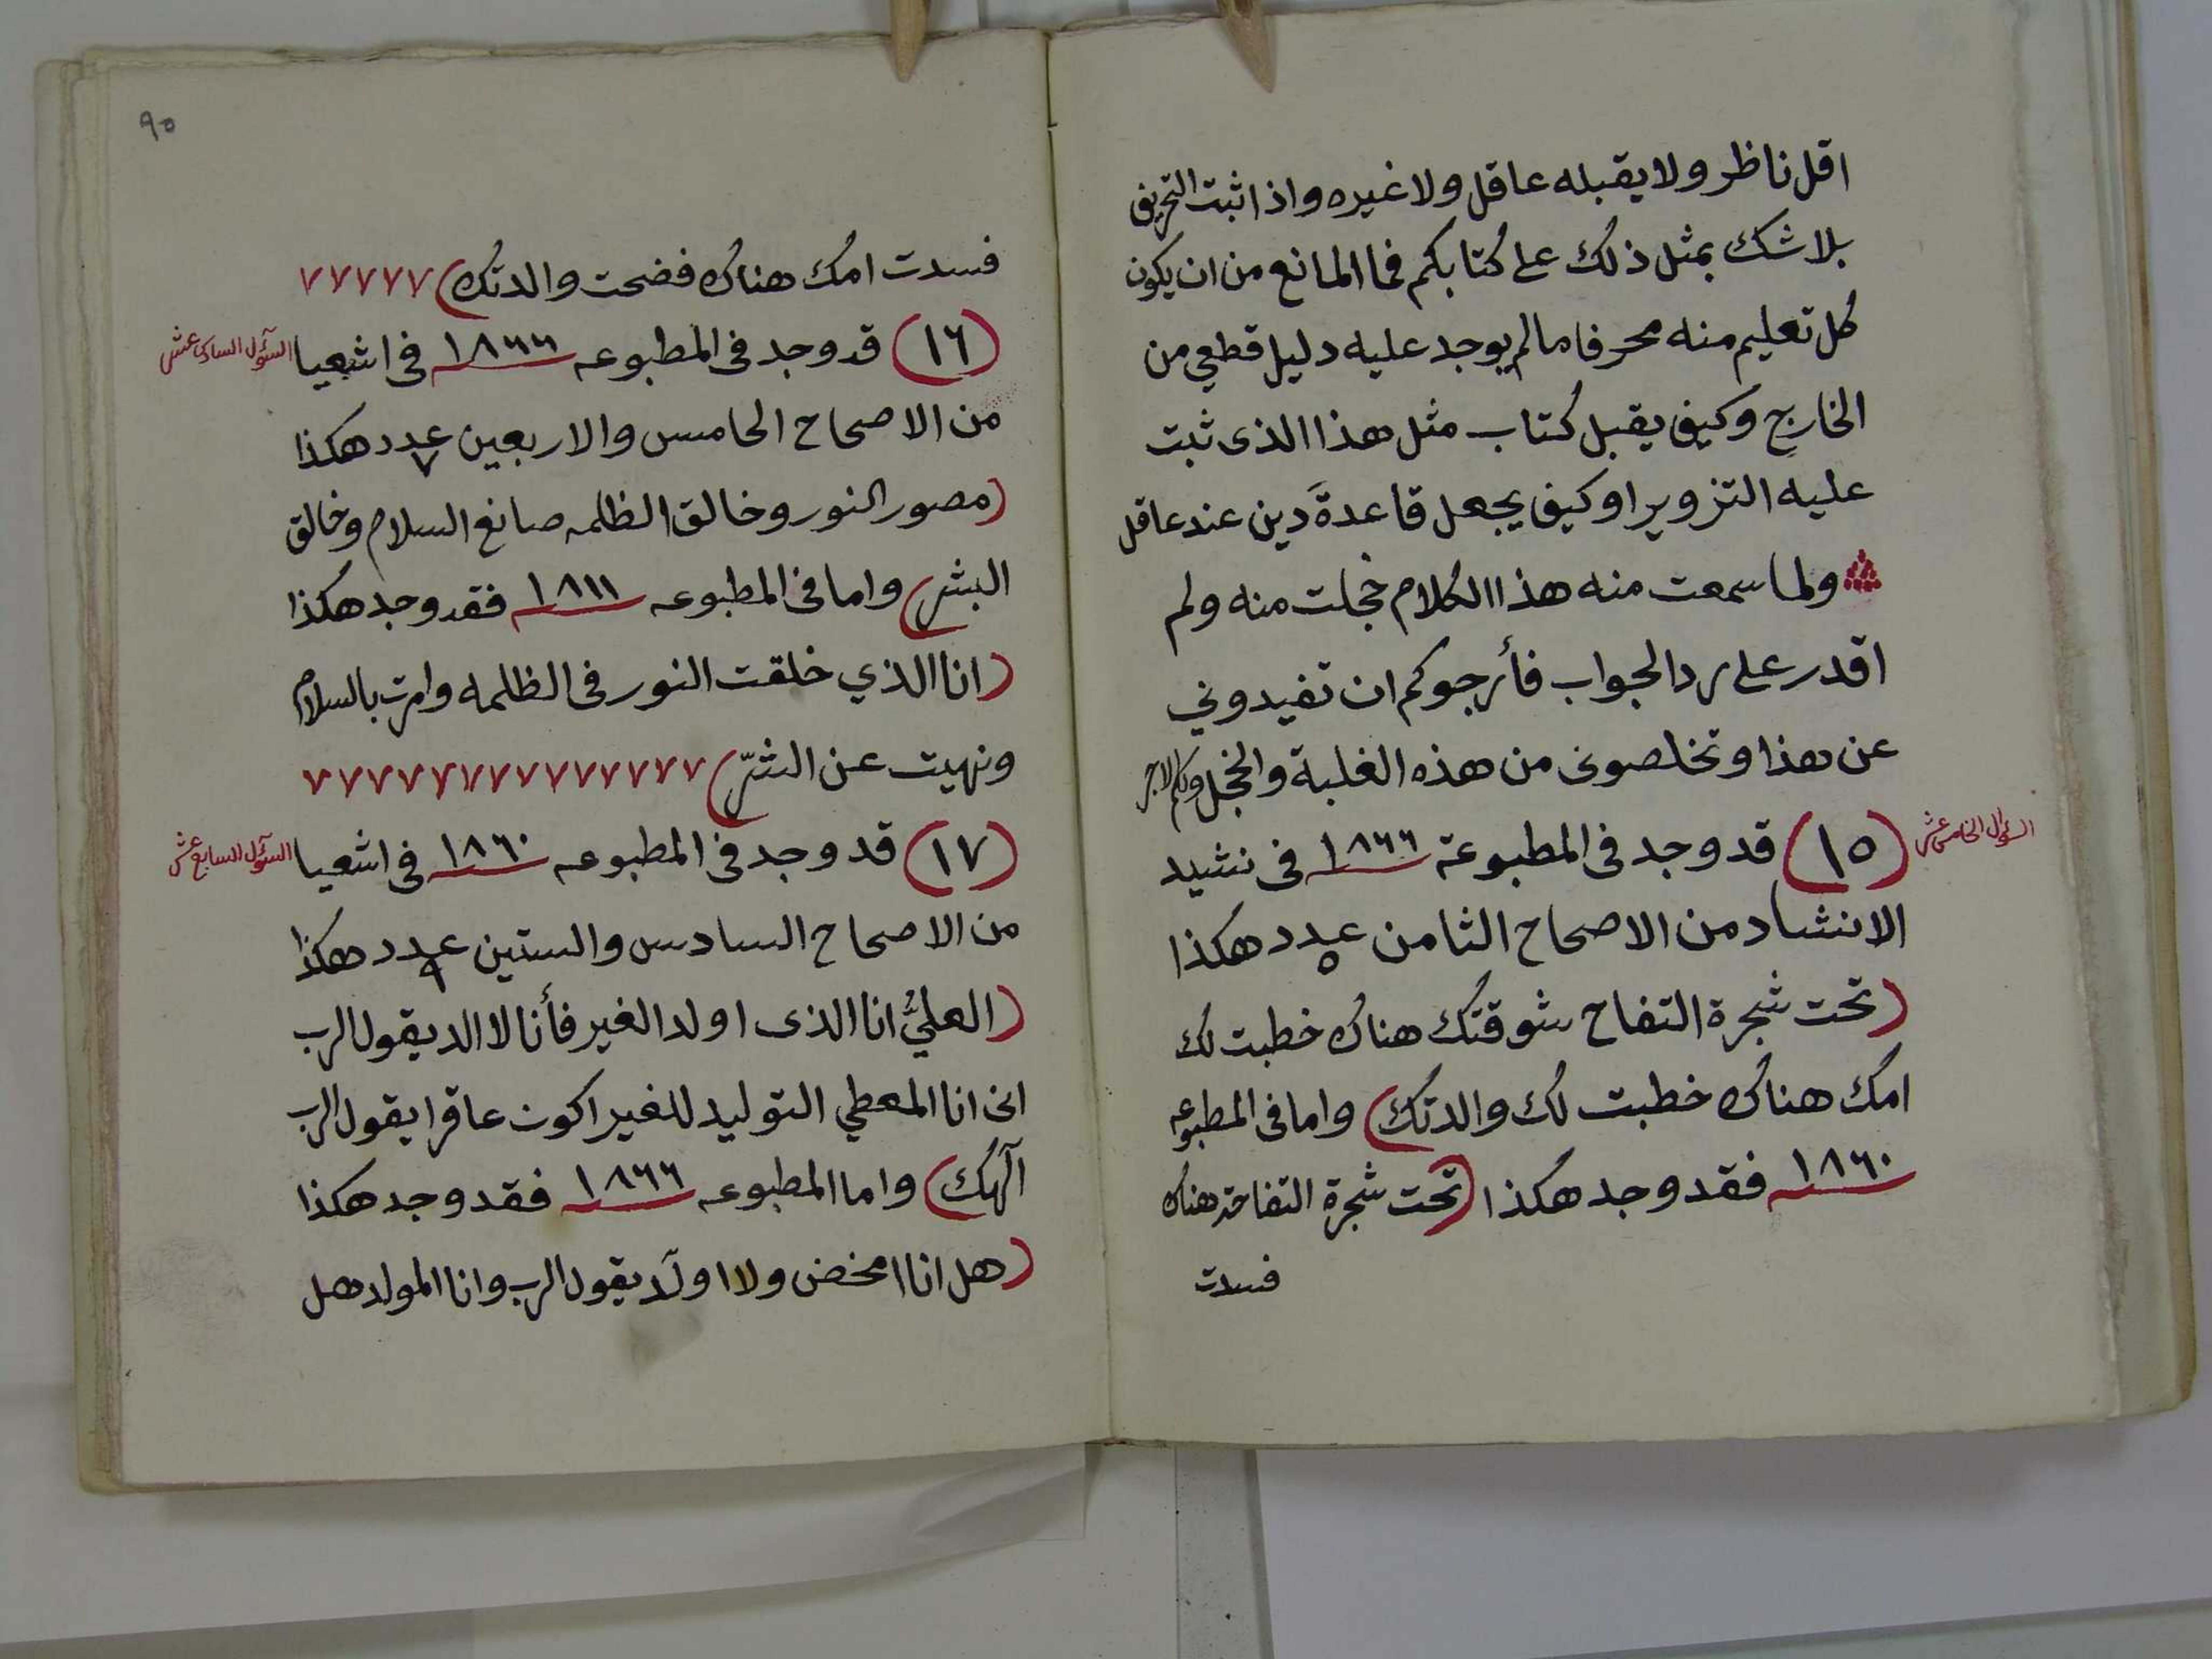 اقل ناظر ولا يقبله عاقل ولا غيره واذا ثبت التحريف
بلا شك بمثل ذلك على كتابكم فما المانع من ان يكون
كل تعليم منه محرفا ما لم يوجد عليه دليل قطعي من
الخارج وكيف يقبل كتاب مثل هذا الذى ثبت
عليه التزوير او كيف يجعل قاعدةَ دين عند عاقل
ولما سمعت منه هذا الكلام خجلت منه ولم
اقدر على رد الجواب فأرجوكم ان تفيدوني
عن هذا وتخلصونى من هذه الغلبة والخجل ولكم الاجر
السؤال الخامس عشر
(١٥) قد وجد فى المطبوعة ١٨٦٦ فى نشيد
الانشاد من الاصحاح الثامن عدد ٥ هكذا
(تحت شجرة التفاح شوقتك هناك خطبت لك
امك هناك خطبت لك والدتك) واما فى المطبوعه
١٨٦٠ فقد وجد هكذا (تحت شجرة التفاحة هناك
فسدت
٩٥
فسدت امك هناك فضحت والدتك) ٧٧٧٧٧
السؤل السادس عشر
(١٦) قد وجد فى المطبوعه ١٨٦٦ فى اشعيا
من الاصحاح الخامس والاربعين عدد ٧ هكذا
(مصور النور وخالق الظلمه صانع السلام وخالق
البشر) واما فى المطبوعه ١٨١١ فقد وجد هكذا
(انا الذي خلقت النور فى الظلمه وامرت بالسلام
ونهيت عن الشرّ) ٧٧٧٧٧٧٧٧٧٧٧٧٧
السؤل السابع عشر
(١٧) قد وجد فى المطبوعه ١٨٦٠ فى اشعيا
من الاصحاح السادس والستين عدد ٩ هكذا
(العليُّ انا الذى اولد الغير فأنا لا الد يقول الرب
انى انا المعطي التوليد للغير اكون عاقرا يقول الرب
آلهك) واما المطبوعه ١٨٦٦ فقد وجد هكذا
(هل انا امخض ولا اولَد يقول الرب وانا المولد هل